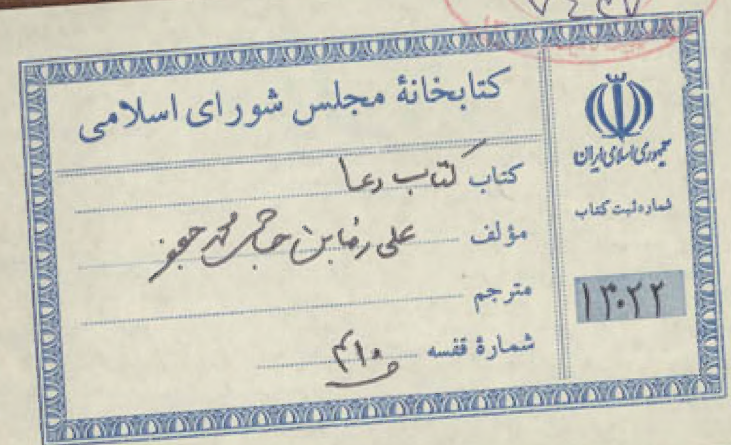 کتابخانهٔ مجلس شورای اسلامی
کتاب کتاب دعا
مؤلف علی رضا بن حاجی محمد جعفر
مترجم
شمارهٔ قفسه
جمهوری اسلامی ایران
شماره ثبت کتاب
۱۳۰۲۲